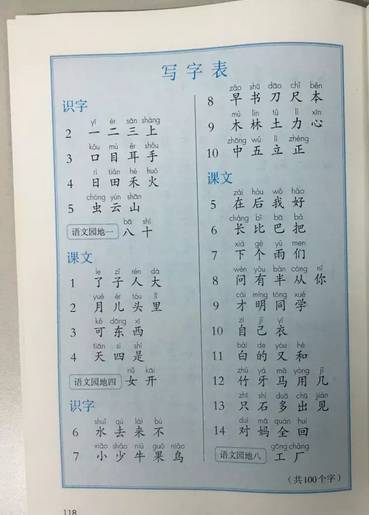 写字表
识字
yī èr sān shàng
2 一 二 三 上
kǒu mù ěr shǒu
3 口 目 耳 手
rì tián hé huǒ
4 日 田 禾 火
chóng yún shān
5 虫 云 山
bā shí
语文园地一 八 十
课文
le zǐ rén dà
1 了 子 人 大
yuè ér tóu lǐ
2 月 儿 头 里
kě dōng xī
3 可 东 西
tiān sì shì
4 天 四 是
nǚ kāi
语文园地四 女 开
识字
shuǐ qù lái bù
6 水 去 来 不
xiǎo shǎo niú guǒ niǎo
7 小 少 牛 果 鸟
zǎo shū dāo chǐ běn
8 早 书 刀 尺 本
mù lín tǔ lì xīn
9 木 林 土 力 心
zhōng wǔ lì zhèng
10 中 五 立 正
课文
zài hòu wǒ hǎo
5 在 后 我 好
cháng bǐ bā bǎ
6 长 比 巴 把
xià gè yǔ men
7 下 个 雨 们
wèn yǒu bàn cóng nǐ
8 问 有 半 从 你
cái míng tóng xué
9 才 明 同 学
zì jǐ yī
10 自 己 衣
bái de yòu hé
11 白 的 又 和
zhú yá mǎ yòng jǐ
12 竹 牙 马 用 几
zhǐ shí duō chū jiàn
13 只 石 多 出 见
duì mā quán huí
14 对 妈 全 回
gōng chǎng
语文园地八 工 厂
（共100个字）
118